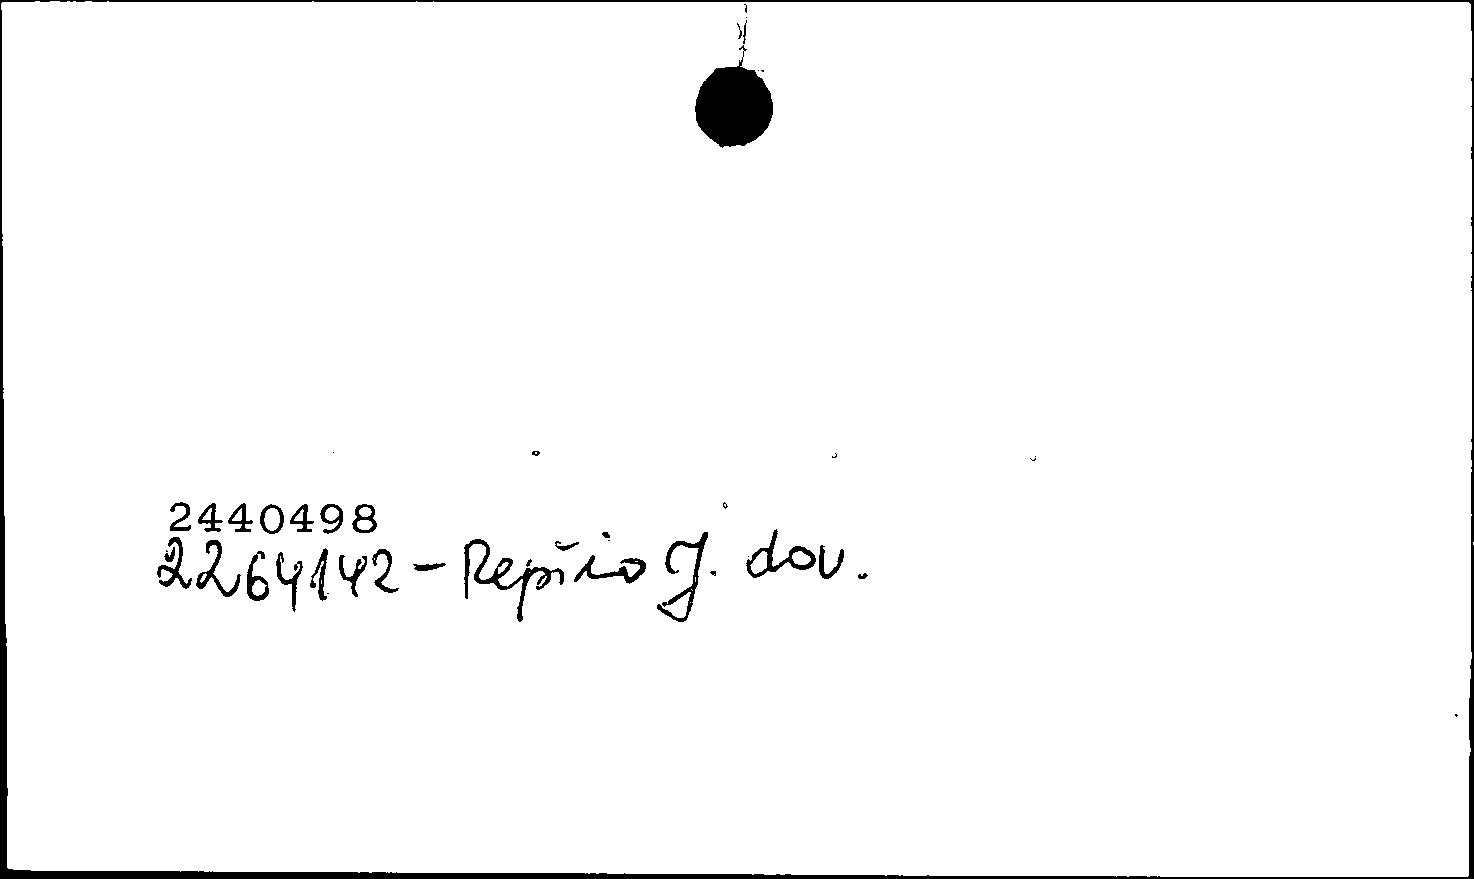 2440498
2264142 - Repšio J. dov.